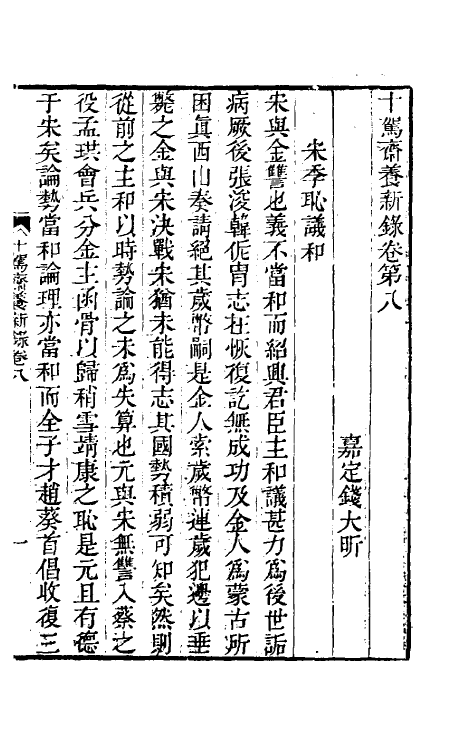 十駕齋養新錄卷第八
嘉定錢大昕
宋季恥議和
宋與金讐也義不當和而紹興君臣主和議甚力爲後世詬
病厥後張浚韓侂胄志在恢復訖無成功及金人爲蒙古所
困眞西山奏請絕其歲幣嗣是金人索歲幣連歲犯邊以垂
斃之金與宋決戰宋猶未能得志其國勢積弱可知矣然則
從前之主和以時勢論之未爲失算也元與宋無讐入蔡之
役孟珙會兵分金主函骨以歸稍雪靖康之恥是元且有德
于宋矣論勢當和論理亦當和而全子才趙葵首倡收復三
十駕齋養新錄卷八
一